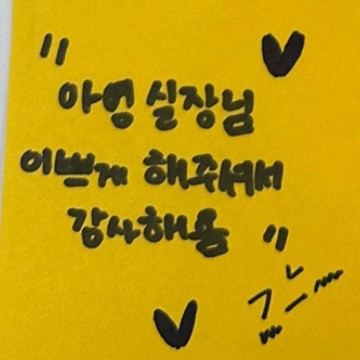 " 아영 실장님
이쁘게 해주셔서
감사해욤 "